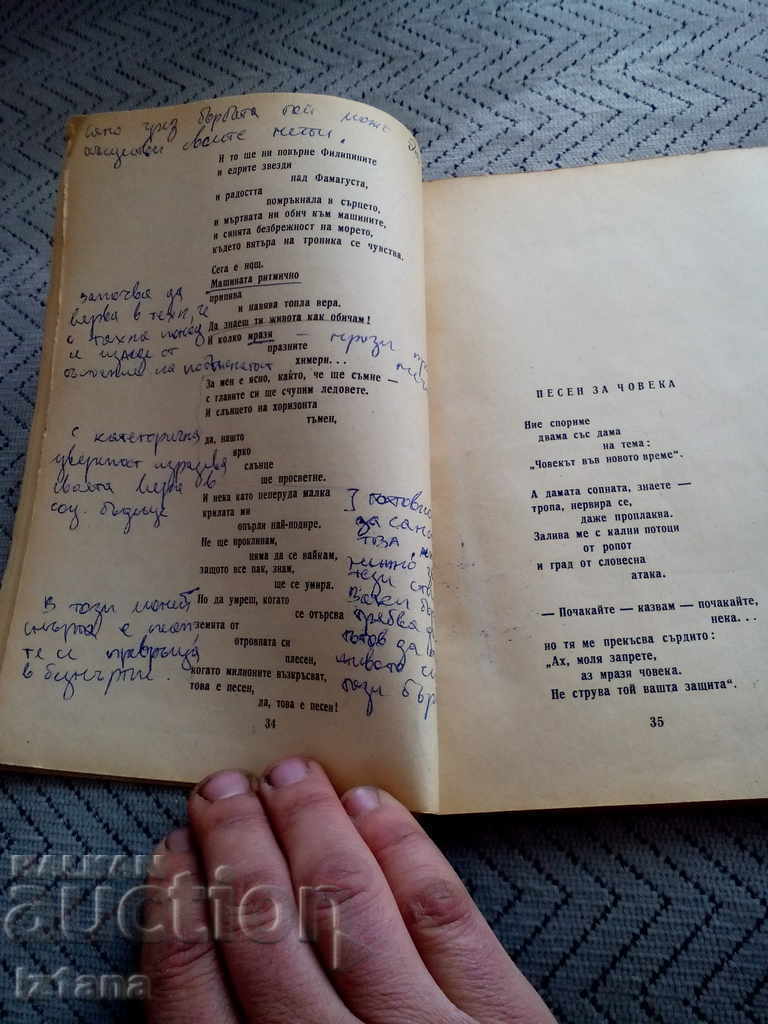 чрез борбата той може
своите мечти.
И то ще ни повърне Филипините
и едрите звезди
над Фамагуста,
и радостта
помръкнала в сърцето,
и мъртвата ни обич към машините,
и синята безбрежност на морето,
където вятъра на тропика се чувства.
Сега е нощ.
Машината ритмично
припява
и навява топла вера.
Да знаеш ти живота как обичам!
И колко мразя
празните
химери...
За мен е ясно, както, че ще съмне —
с главите си ще счупим ледовете.
И слънцето на хоризонта
тъмен,
да, нашто
ярко
слънце
ще просветне.
И нека като пеперуда малка
крилата ми
опърли най-подире.
Не ще проклинам,
няма да се вайкам,
защото все пак, знам,
ще се умира.
Но да умреш, когато
се отърсва
земята от
отровната си
плесен,
когато милионите възкръсват,
това е песен,
да, това е песен!
34
започва да
вярва в
с
и
с категорична
увереност изразява
своята вера в
соц. бъдеще
В този момент
смъртта е
те се превръща
в безсмъртие.
за
това,
тези
трябва
готов да
живота си
тази
ПЕСЕН ЗА ЧОВЕКА
Ние спориме
двама със дама
на тема:
„Човекът във новото време“.
А дамата сопната, знаете —
тропа, нервира се,
даже проплаква.
Залива ме с кални потоци
от ропот
и град от словесна
атака.
— Почакайте — казвам — почакайте,
нека...
но тя ме прекъсва сърдито:
„Ах, моля запрете,
аз мразя човека.
Не струва той вашта защита“.
35
BALKAN
auction
Iztana